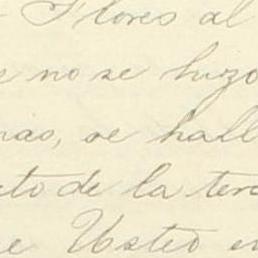 Flores al
no se hizo
nas, se hall
to de la terc
e Usted e